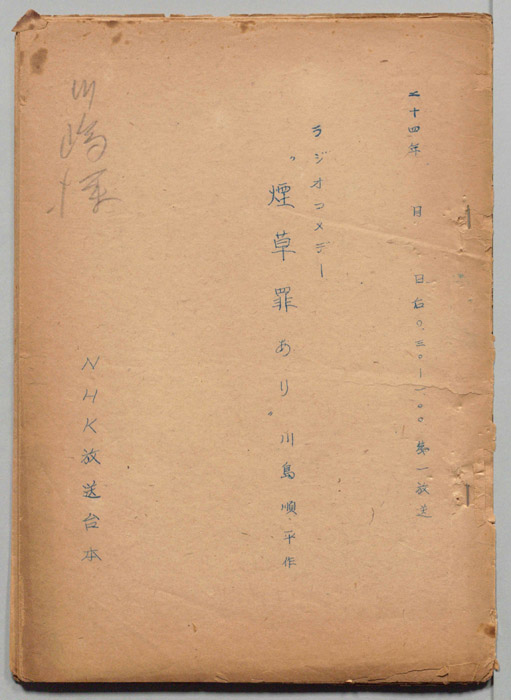 二十四年 月 日后〇.三〇―一.〇〇 第一放送
ラジオコメデー
“煙草罪あり” 川島順平作
NHK放送台本
川島様